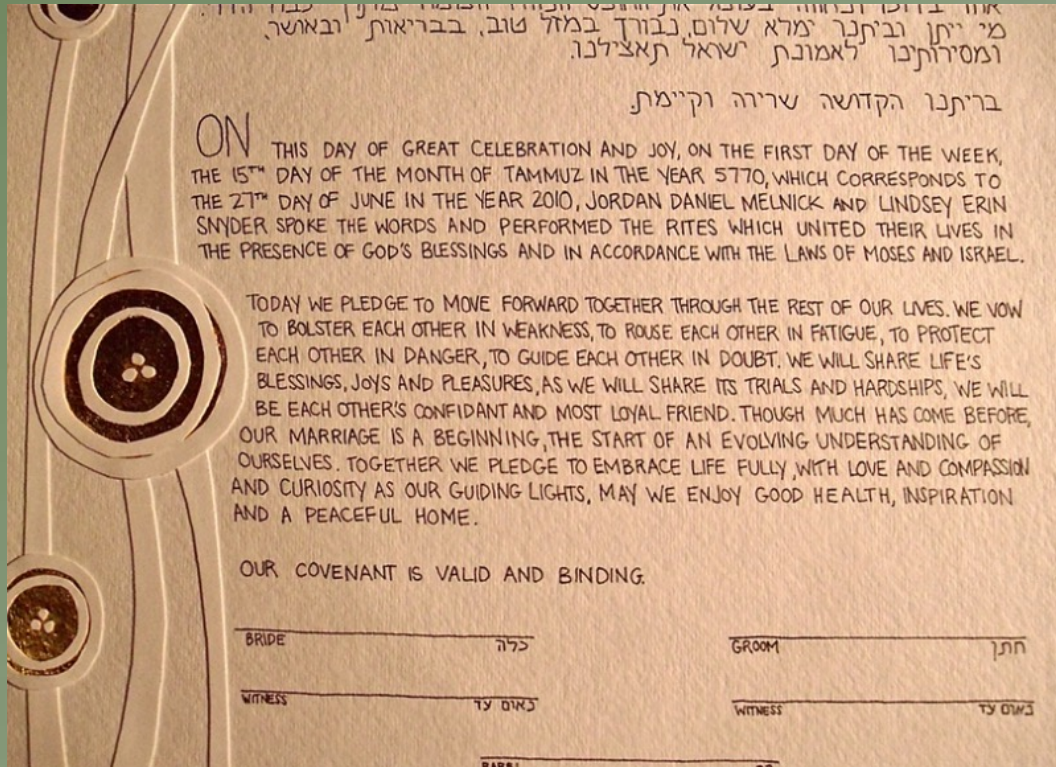 מי ייתן וביתנו ימלא שלום, נבורך במזל טוב, בבריאות ובאושר,
ומסירותינו לאמונת ישראל תאצילנו.
בריתנו הקדושה שרירה וקיימת.
ON THIS DAY OF GREAT CELEBRATION AND JOY, ON THE FIRST DAY OF THE WEEK,
THE 15TH DAY OF THE MONTH OF TAMMUZ IN THE YEAR 5770, WHICH CORRESPONDS TO
THE 27TH DAY OF JUNE IN THE YEAR 2010, JORDAN DANIEL MELNICK AND LINDSEY ERIN
SNYDER SPOKE THE WORDS AND PERFORMED THE RITES WHICH UNITED THEIR LIVES IN
THE PRESENCE OF GOD'S BLESSINGS AND IN ACCORDANCE WITH THE LAWS OF MOSES AND ISRAEL.
TODAY WE PLEDGE TO MOVE FORWARD TOGETHER THROUGH THE REST OF OUR LIVES. WE VOW
TO BOLSTER EACH OTHER IN WEAKNESS, TO ROUSE EACH OTHER IN FATIGUE, TO PROTECT
EACH OTHER IN DANGER, TO GUIDE EACH OTHER IN DOUBT. WE WILL SHARE LIFE'S
BLESSINGS, JOYS AND PLEASURES, AS WE WILL SHARE ITS TRIALS AND HARDSHIPS, WE WILL
BE EACH OTHER'S CONFIDANT AND MOST LOYAL FRIEND. THOUGH MUCH HAS COME BEFORE,
OUR MARRIAGE IS A BEGINNING, THE START OF AN EVOLVING UNDERSTANDING OF
OURSELVES. TOGETHER WE PLEDGE TO EMBRACE LIFE FULLY, WITH LOVE AND COMPASSION
AND CURIOSITY AS OUR GUIDING LIGHTS, MAY WE ENJOY GOOD HEALTH, INSPIRATION
AND A PEACEFUL HOME.
OUR COVENANT IS VALID AND BINDING.
BRIDE כלה GROOM חתן
WITNESS נאום עד WITNESS נאום עד